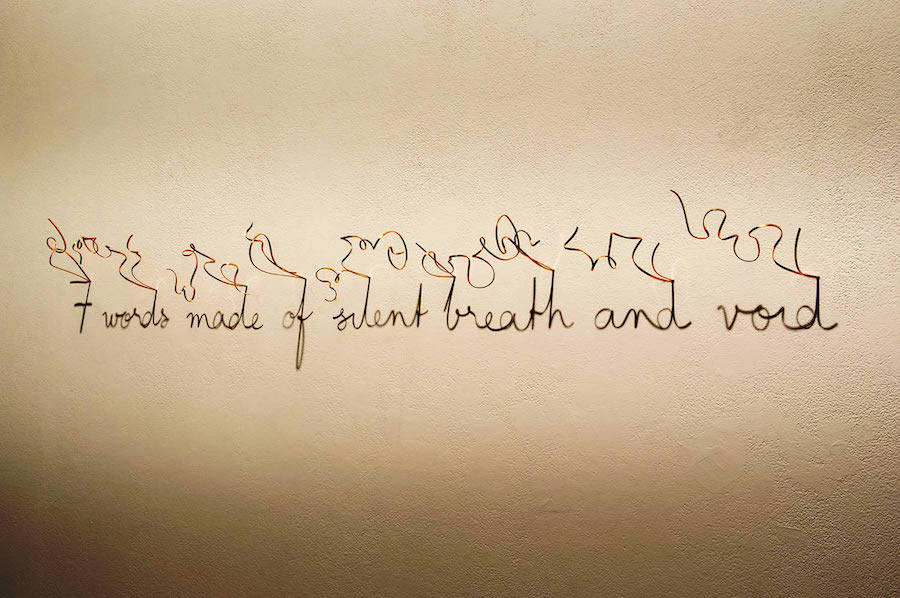 7 words made of silent breath and void